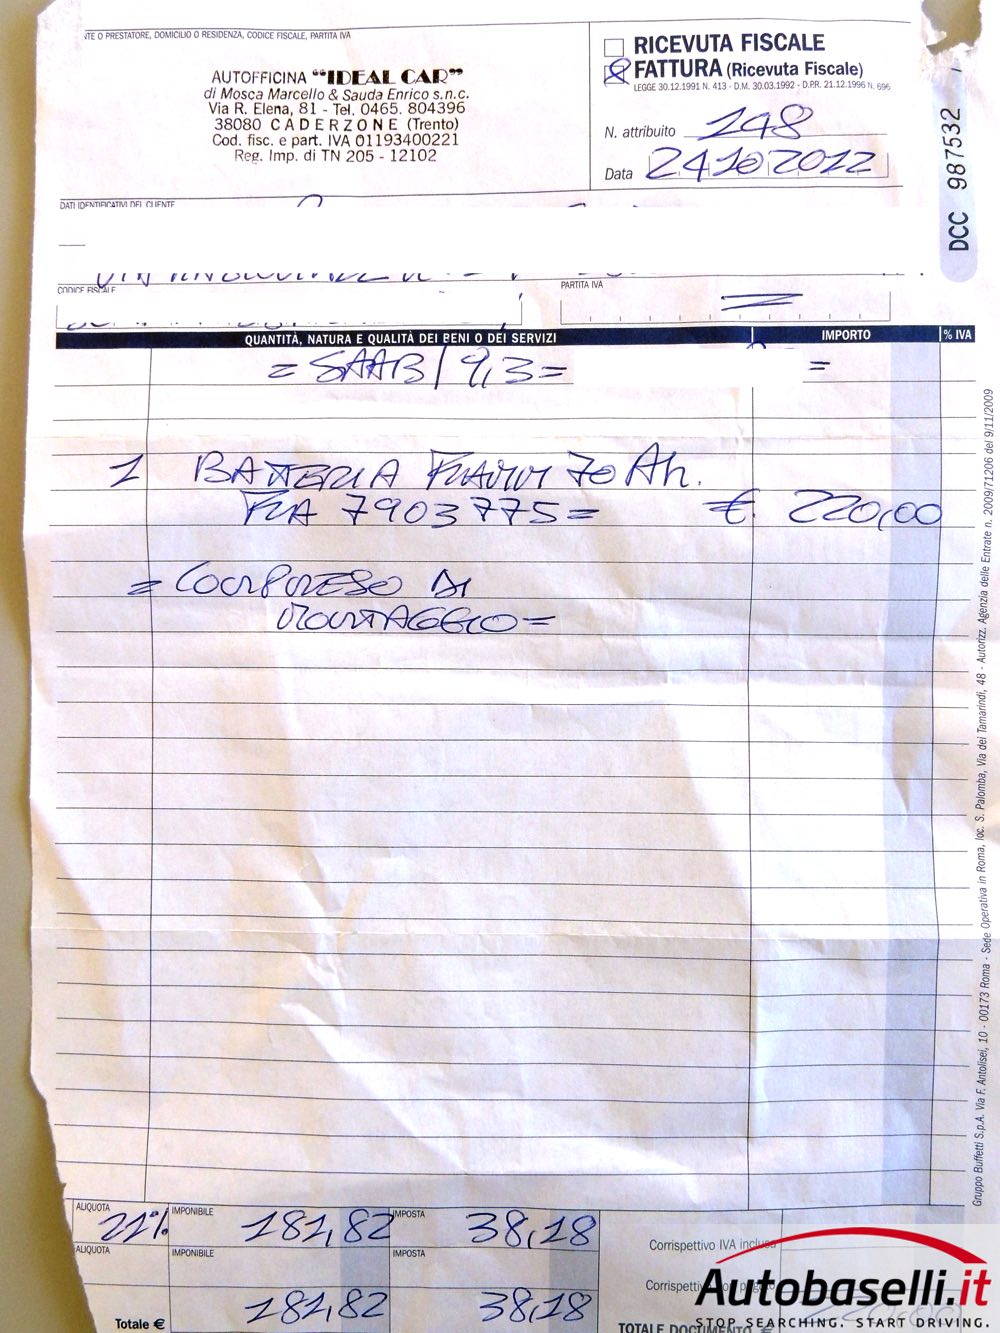 NTE O PRESTATORE, DOMICILIO O RESIDENZA, CODICE FISCALE, PARTITA IVA
AUTOFFICINA "IDEAL CAR"
di Mosca Marcello & Sauda Enrico s.n.c.
Via R. Elena, 81 - Tel. 0465. 804396
38080 CADERZONE (Trento)
Cod. fisc. e part. IVA 01193400221
Reg. Imp. di TN 205 - 12102
RICEVUTA FISCALE
FATTURA (Ricevuta Fiscale)
LEGGE 30.12.1991 N. 413 - D.M. 30.03.1992 - D.P.R. 21.12.1996 N. 696
N. attribuito 148
Data 24102012
DCC 987532
DATI IDENTIFICATIVI DEL CLIENTE
CODICE FISCALE
PARTITA IVA
QUANTITÀ, NATURA E QUALITÀ DEI BENI O DEI SERVIZI IMPORTO % IVA
= SAAB / 9,3 = =
1 BATTERIA FIAMM 70 Ah.
FIA 7903775 = €. 220,00
= COMPRESO DI
MONTAGGIO =
Gruppo Buffetti S.p.A. Via F. Antolisei, 10 - 00173 Roma - Sede Operativa in Roma, loc. S. Palomba, Via dei Tamarindi, 48 - Autorizz. Agenzia delle Entrate n. 2009/71206 del 9/11/2009
ALIQUOTA 21% IMPONIBILE 181,82 IMPOSTA 38,18
ALIQUOTA IMPONIBILE IMPOSTA
Totale € 181,82 38,18
Corrispettivo IVA inclusa
Corrispettivo
TOTALE DOCUMENTO €
Autobaselli.it
STOP SEARCHING. START DRIVING.